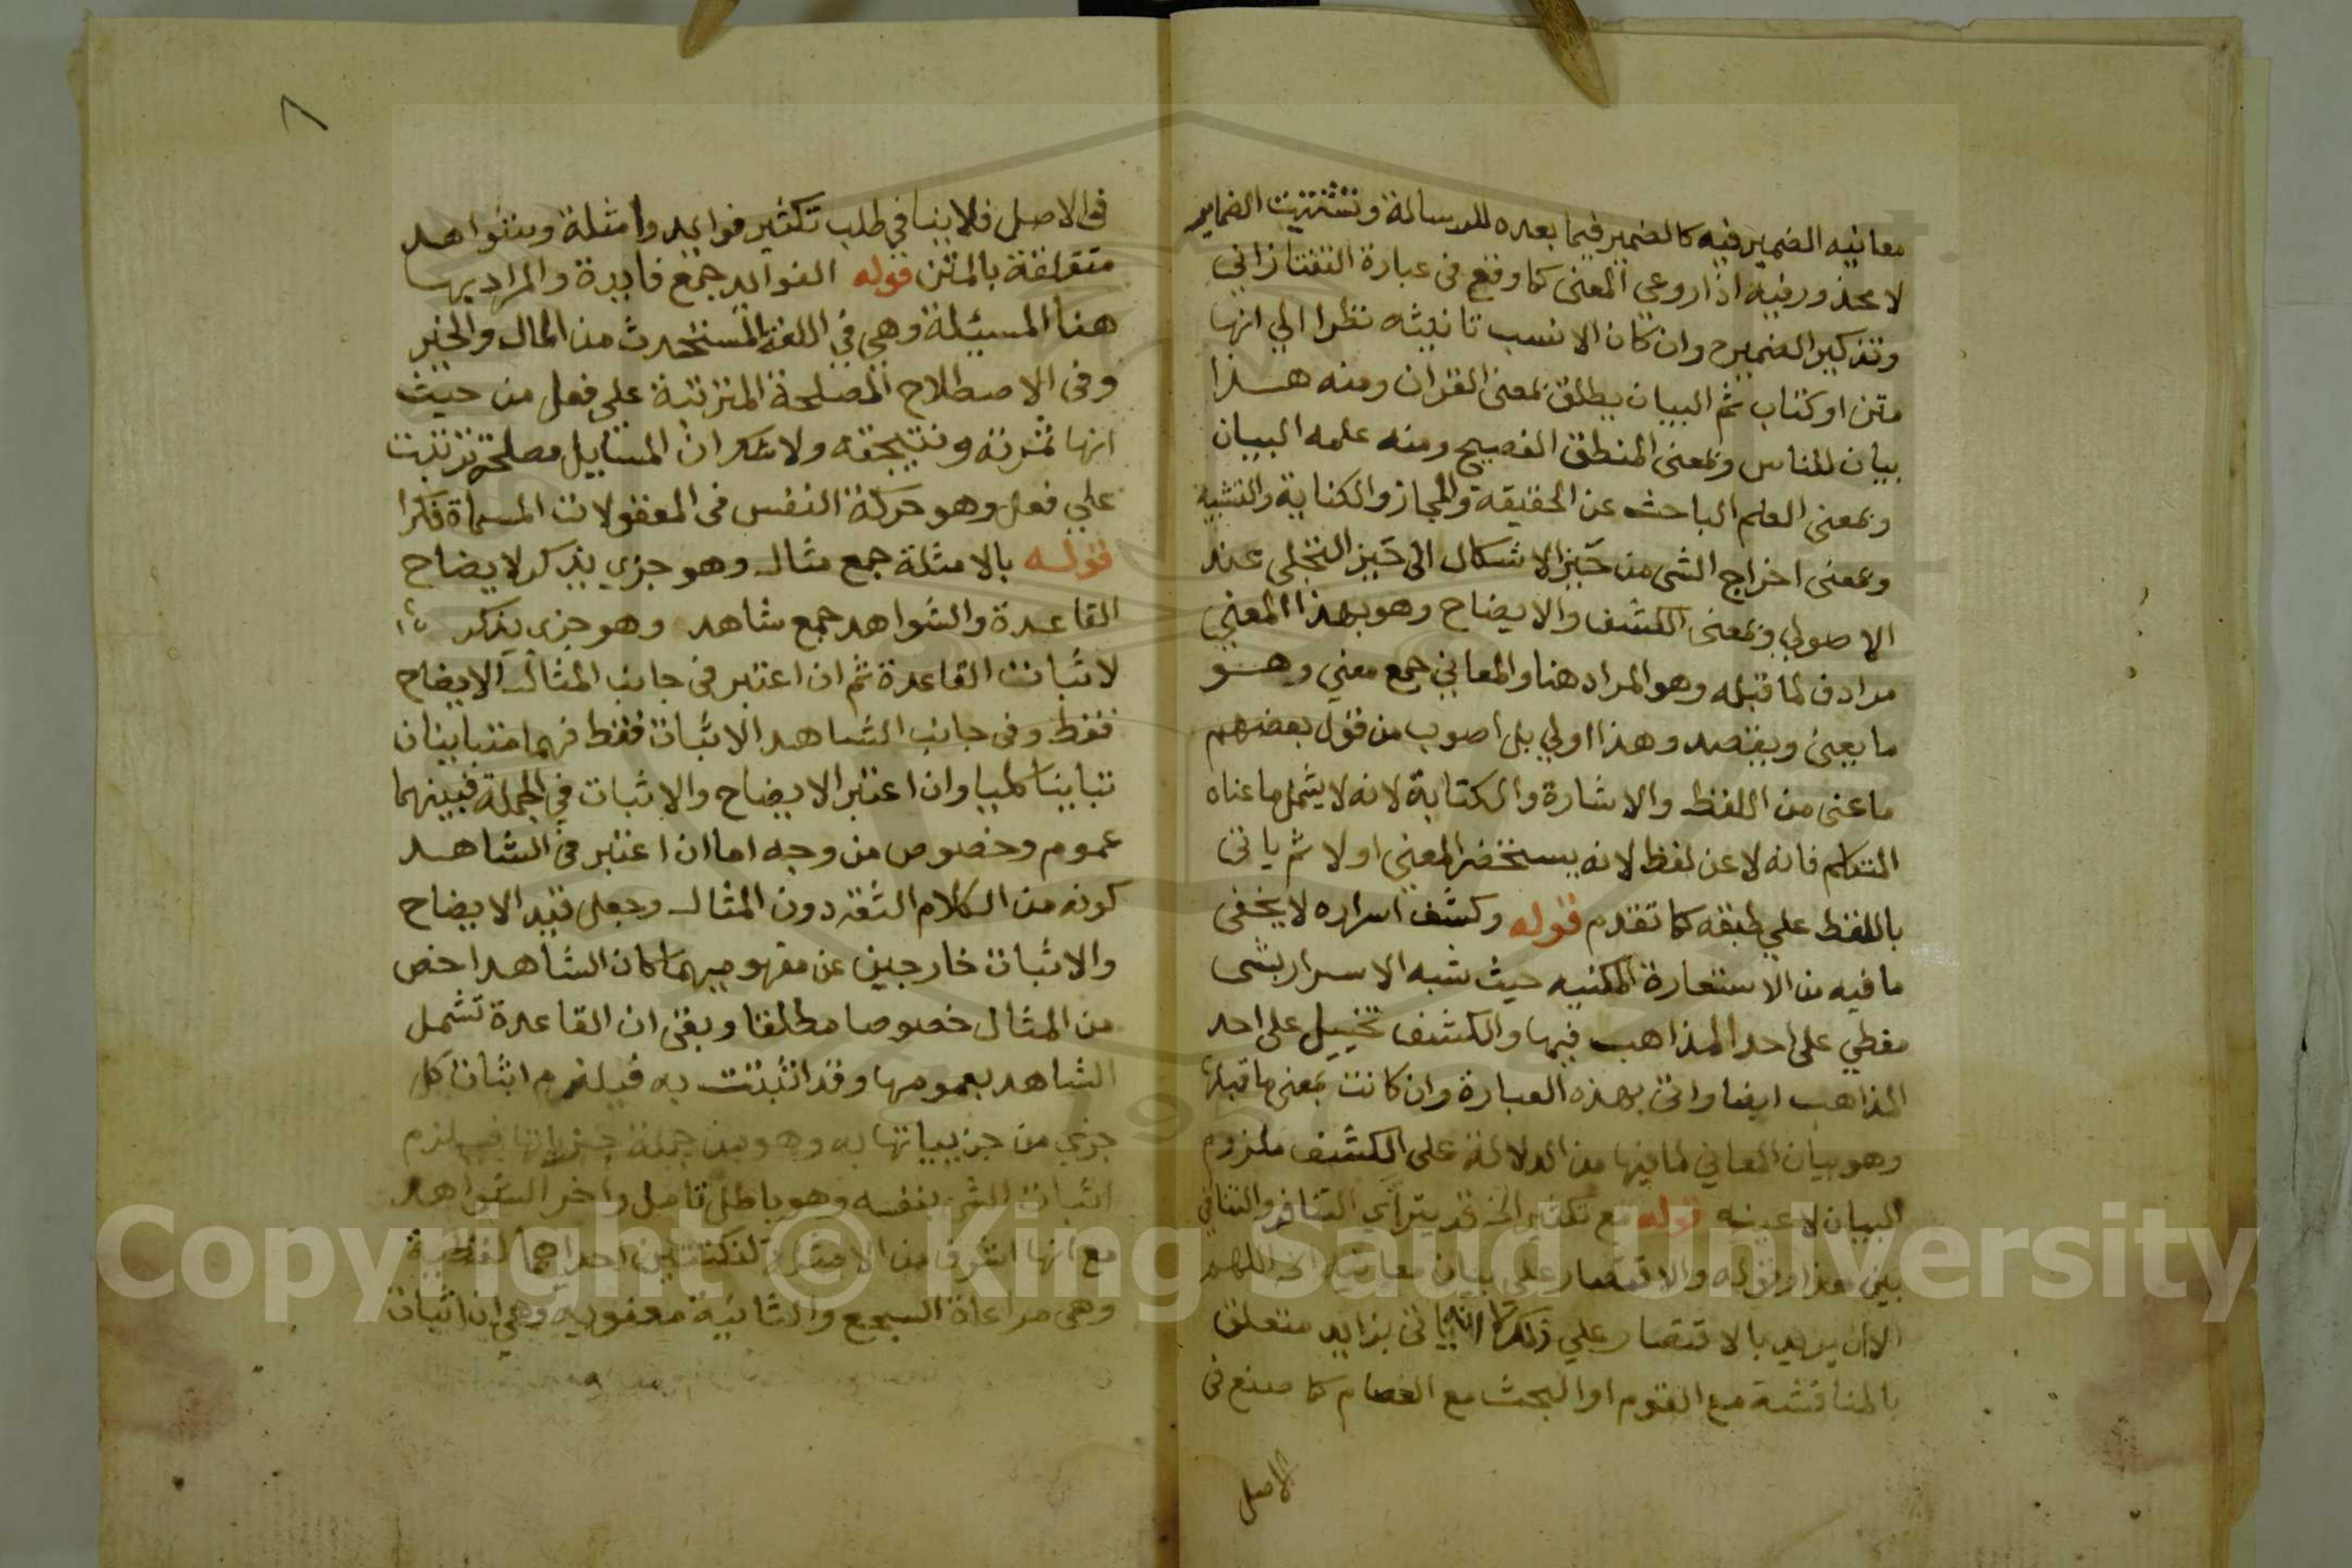 معانيه الضمير فيه كالضمير فيما بعده للرسالة وتشتيت الضماير
لا محذور فيه اذا روعي المعنى كما وقع في عبارة التفتازاني
وتذكير الضمير ح وان كان الانسب تانيثه نظرا الي انها
متن او كتاب ثم البيان يطلق بمعنى القران ومنه هذا
بيان للناس وبمعنى المنطق الفصيح ومنه علمه البيان
وبمعنى العلم الباحث عن الحقيقة والمجاز والكناية والتشبيه
وبمعنى اخراج الشى من حَيز الاشكال الى حَيز التجلى عند
الاصولي وبمعنى الكشف والايضاح وهو بهذا المعني
مرادف لما قبله وهو المراد هنا والمعاني جمع معني وهو
ما يعين ويقصد وهذا اولي بل اصوب من قول بعضهم
ما عنى من اللفظ والاشارة والكتابة لانه لا يشمل ما عناه
المتكلم فانه لا عن لفظ لانه يستحضر المعنى اولا ثم ياتى
باللفظ علي طبقه كما تقدم قوله وكشف اسراره لا يخفى
ما فيه من الاستعارة المكنيه حيث شبه الاسرار بشى
مغطي على احد المذاهب فيها والكشف تخييل على احد
المذاهب ايضا واتى بهذه العبارة وان كانت بمعنى ما قبلها
وهو بيان المعاني لما فيها من الدلالة على الكشف ملزوم
البيان لا عينه قوله مع تكثير الخ قد يترآى التنافر والتنافي
بين هذا وقوله والاقتصار على بيان معانيه الا اللهم
الا ان يريد بالاقتصار علي ذلك انه لا ياتى بزايد متعلق
بالمناقشة مع القوم او البحث مع العصام كما صنع فى
الاصل
٨
فى الاصل فلا ينافي طلب تكثير فوايد وامثلة وشواهد
متعلقة بالمتن قوله الفوايد جمع فايدة والمراد بها
هنا المسيئلة وهي في اللغة المستحدث من المال والخير
وفى الاصطلاح المصلحة المترتبة على فعل من حيث
انها ثمرته ونتيجته ولا شك ان المسايل مصلحة ترتبت
علي فعل وهو حركة النفس فى المعقولات المسماة فكرا
قوله بالامثلة جمع مثال وهو جزي يذكر لايضاح
القاعدة والشواهد جمع شاهد وهو جزى يذكر
لاثبات القاعدة ثم ان اعتبر فى جانب المثال الايضاح
فقط وفى جانب الشاهد الاثبات فقط فهما متباينان
تباينا كليا وان اعتبر الايضاح والاثبات في الجملة فبينهما
عموم وخصوص من وجه اما ان اعتبر فى الشاهد
كونه من الكلام الثقة دون المثال وجعل قيد الايضاح
والاثبات خارجين عن مفهوميهما كان الشاهد اخص
من المثال خصوصا مطلقا وبقى ان القاعدة تشمل
الشاهد بعمومها وقد اثبتت به فيلزم اثبات كل
جزي من جزيياتها به وهو من جملة جزياتها فيلزم
اثبات الشى بنفسه وهو باطل تامل واخر الشواهد
مع انها اشرف من الامثلة لنكتتين احداهما لفظية
وهى مراعاة السجع والثانية معنوية وهي ان اثبات